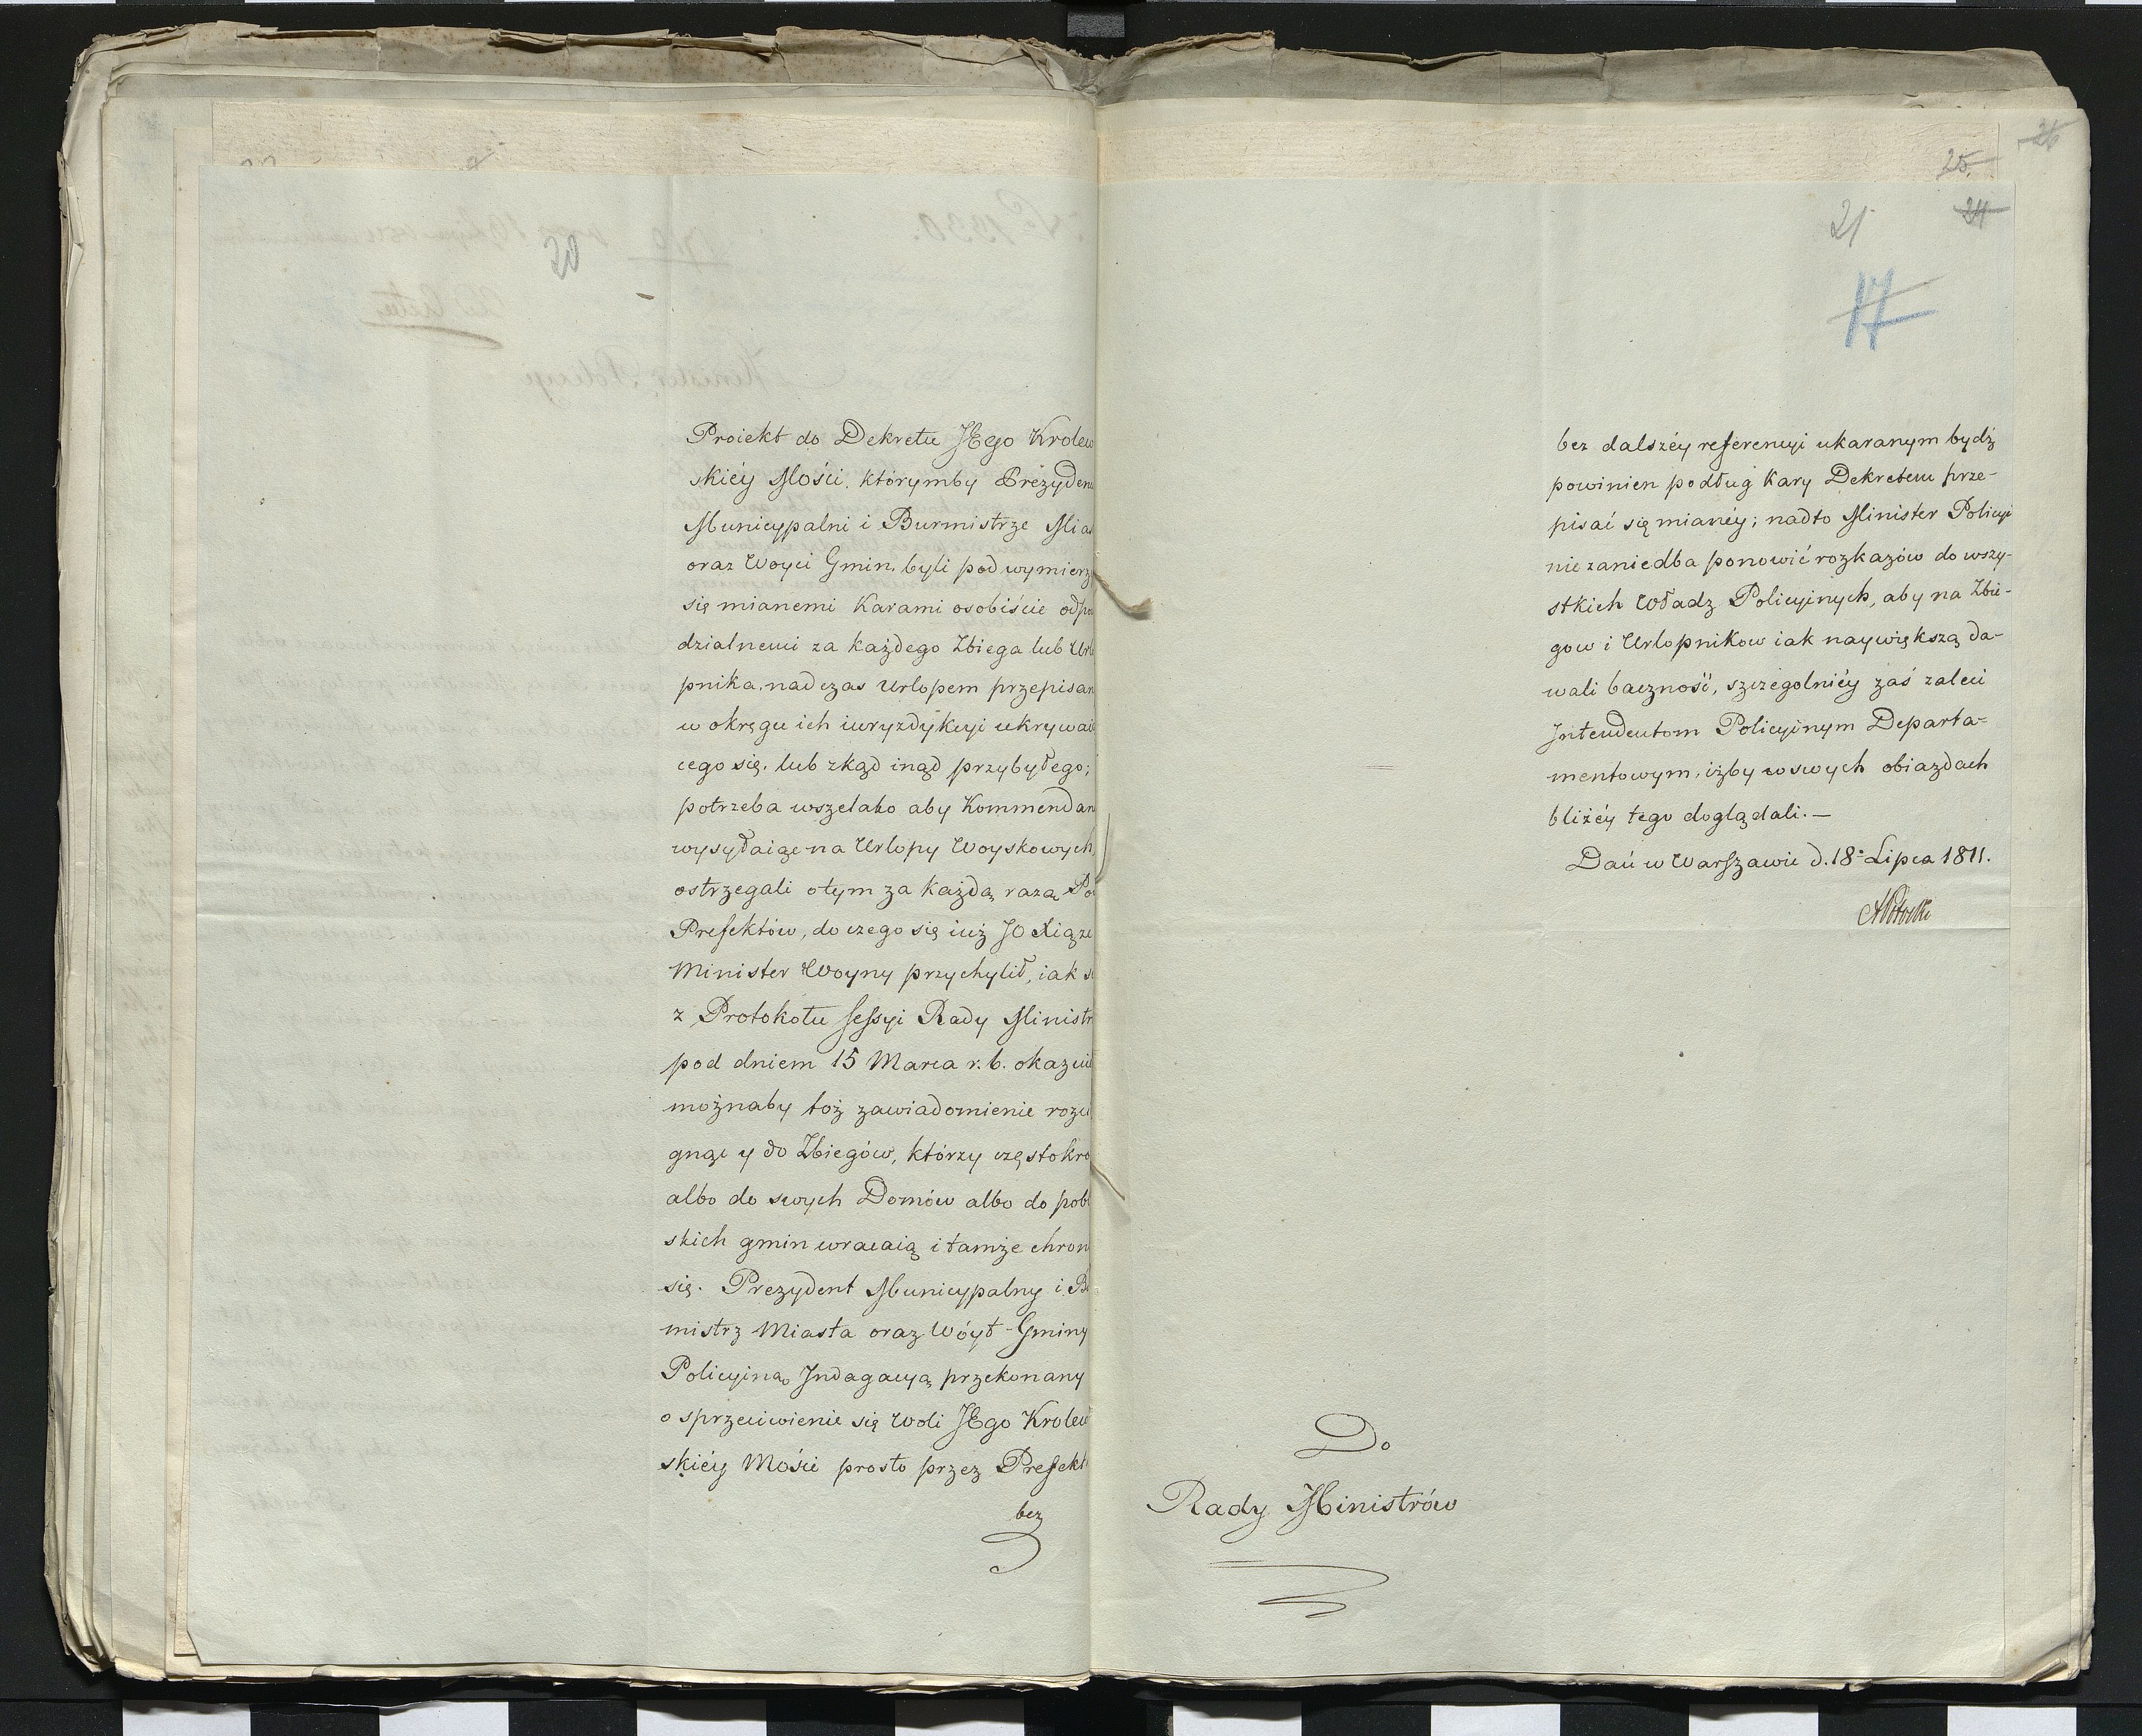 20
Proiekt do Dekretu JEgo Krolew
skiéy Mości, którymby Prezyden
Municypalni i Burmistrze Mia
oraz Woyci Gmin, byli pod wymierz
się mianemi Karami osobiście odpo
dzialnemi za każdego Zbiega lub Urlo
pnika, nad czas Urlopem przepisan
w okręgu ich iuryzdykcyi ukrywaią
cego się, lub zkąd inąd przybyłego;
potrzeba wszelako aby Kommendan
wysyłaiąc na Urlopy Woyskowych,
ostrzegali o tym za każdą razą Po
Prefektów, do czego się iuż JO Xiąże
Minister Woyny przychylił, iak s
z Protokołu sessyi Rady Ministr
pod dniem 15 Marca r. b. okazuie
możnaby toż zawiadomienie rozci
gnąć y do Zbiegów, którzy częstokro
albo do swych Domów albo do pobl
skich gmin wracaią i tamże chron
się. Prezydent Municypalny i Bu
mistrz Miasta oraz Wóyt Gminy
Policyiną Indagacyą przekonany
o sprzeciwienie się Woli JEgo Krolew
skiéy Mości prosto przez Prefekt
bez
26
25.
21 24
17
bez dalszéy referencyi ukaranym bydź
powinien podług Kary Dekretem prze-
pisać się mianéy; nadto Minister Policyi
nie zaniedba ponowić rozkazów do wszy-
stkich Władz Policyinych, aby na Zbie-
gow i Urlopnikow iak naywiększą da-
wali baczność, szczegolniéy zaś zaleci
Intendentom Policyinym Departa-
mentowym, iżby w swych obiazdach
bliżéy tego doglądali.—
Dań w Warszawie d. 18. Lipca 1811.
APotocki
Do
Rady Ministrów